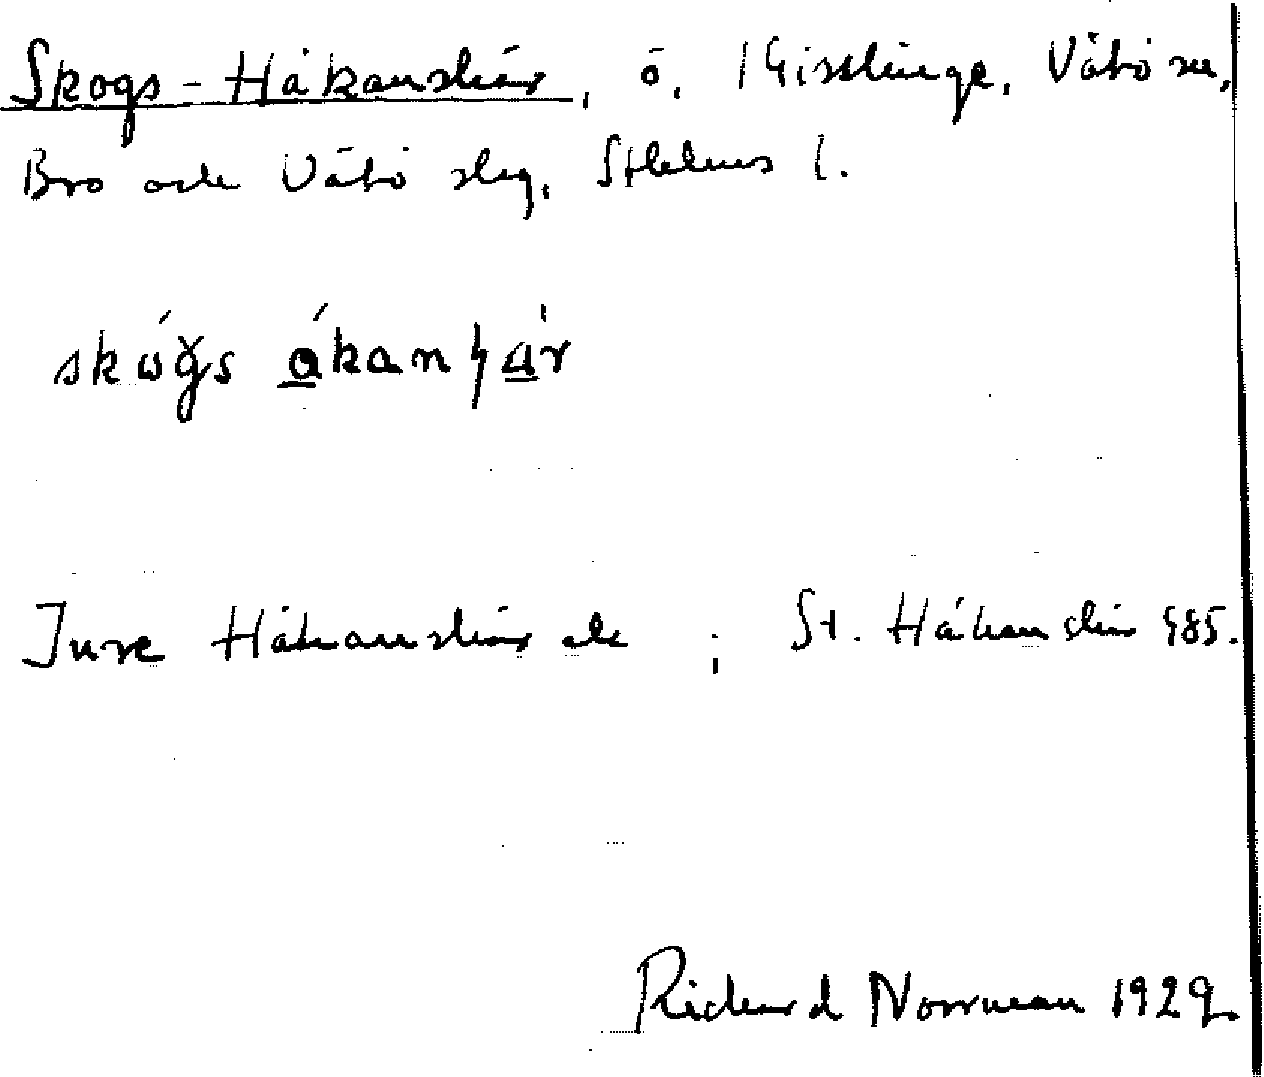 Skogs-Håkanskär, ö, Gisslinge, Vätö sn,
Bro och Vätö slg, Sthlms l.
skógs åkanʂär
Inre Håkanskär ek ; St. Håkanskär 985.
Richard Norrman 1929.